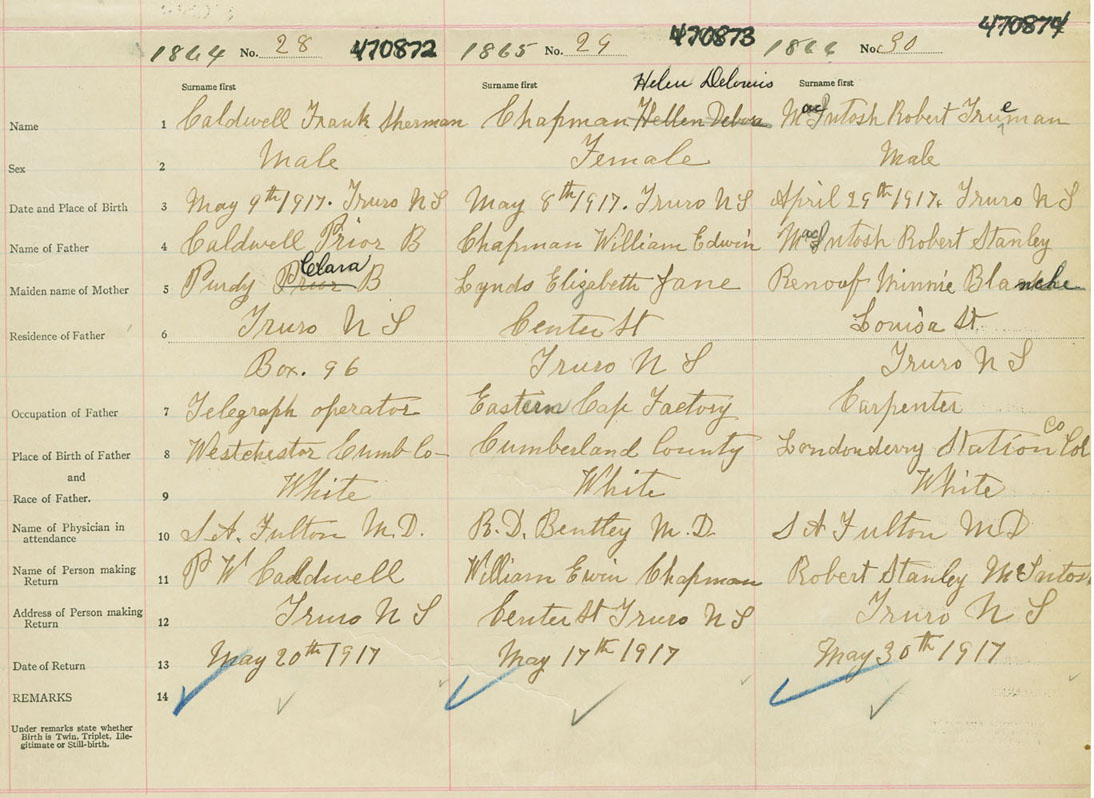 1864 No. 28 470872 1865 No. 29 470873 1866 No. 30 470874
Surname first Surname first Helen Delouis Surname first
Name 1 Caldwell Frank Sherman Chapman Hellen Debora MacIntosh Robert Trueman
Sex 2 Male Female Male
Date and Place of Birth 3 May 9th 1917. Truro N S May 8th 1917. Truro N S April 29th 1917. Truro N S
Name of Father 4 Caldwell Prior B Chapman William Edwin MacIntosh Robert Stanley
Clara
Maiden name of Mother 5 Purdy Prior B Lynds Elizabeth Jane Renouf Minnie Blanche
Residence of Father 6 Truro N S Center St Louisa St
Box. 96 Truro N S Truro N S
Occupation of Father 7 Telegraph operator Eastern Cap Factory Carpenter
Place of Birth of Father 8 Westchestor Cumb Co Cumberland County Londonderry Station Col Co
and
Race of Father. 9 White White White
Name of Physician in attendance 10 S. A. Fulton M.D. R. D. Bentley M.D. S A Fulton M D
Name of Person making Return 11 P W Caldwell William Ewin Chapman Robert Stanley McIntosh
Address of Person making Return 12 Truro N S Center St Truro N S Truro N S
Date of Return 13 May 20th 1917 May 17th 1917 May 30th 1917
REMARKS 14
Under remarks state whether
Birth is Twin, Triplet, Ille-
gitimate or Still-birth.